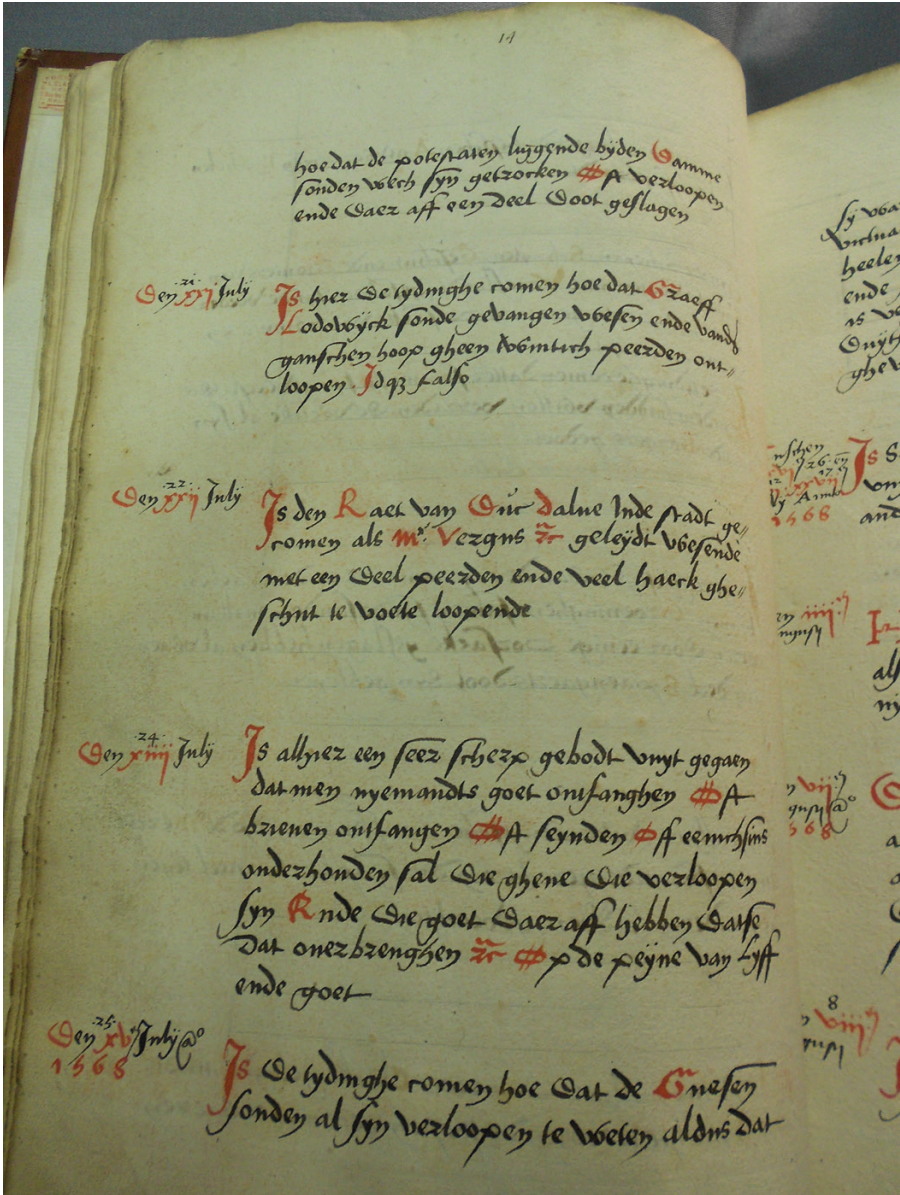 14
hoe dat de potestaten liggende byden Damme
sonden wech syn getrocken Oft verloopen
ende daer aff een deel doot geslagen
21
Den xxi July
Is hier de tydinghe comen hoe dat Graeff
Lodowyck sonde gevangen wesen ende vand
ganschen hoop gheen twintich peerden ont-
loopen. Idq3 falso
22
Den xxii July
Is den Raet van Duc dalve Inde stadt ge-
comen als mr Vergus etc geleydt wesende
met een deel peerden ende veel haeck ghe-
schut te voete loopende
24
Den xiiii July
Is alhier een seer scherp gebodt vuyt gegaen
dat men nyemandts goet ontfanghen Oft
brieven ontfangen Oft seynden Off eenichsins
onderhouden sal die ghene die verloopen
syn Ende die goet daer aff hebben datse
dat overbrenghen etc Op de peyne van lyff
ende goet
25
Den xv July ao
1568
Is de tydinghe comen hoe dat de Guesen
sonden al syn verloopen te weten aldus dat
sy
heelen
ende
as
ghe
26 en
27
xxvii
1568
Is
iiii
als
vii
1568
8
viii